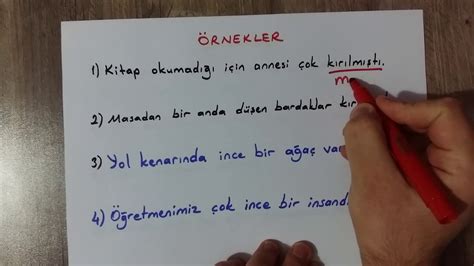 ÖRNEKLER
1) Kitap okumadığı için annesi çok kırılmıştı.
m
2) Masadan bir anda düşen bardaklar kır
3) Yol kenarında ince bir ağaç va
4) Öğretmenimiz çok ince bir insand